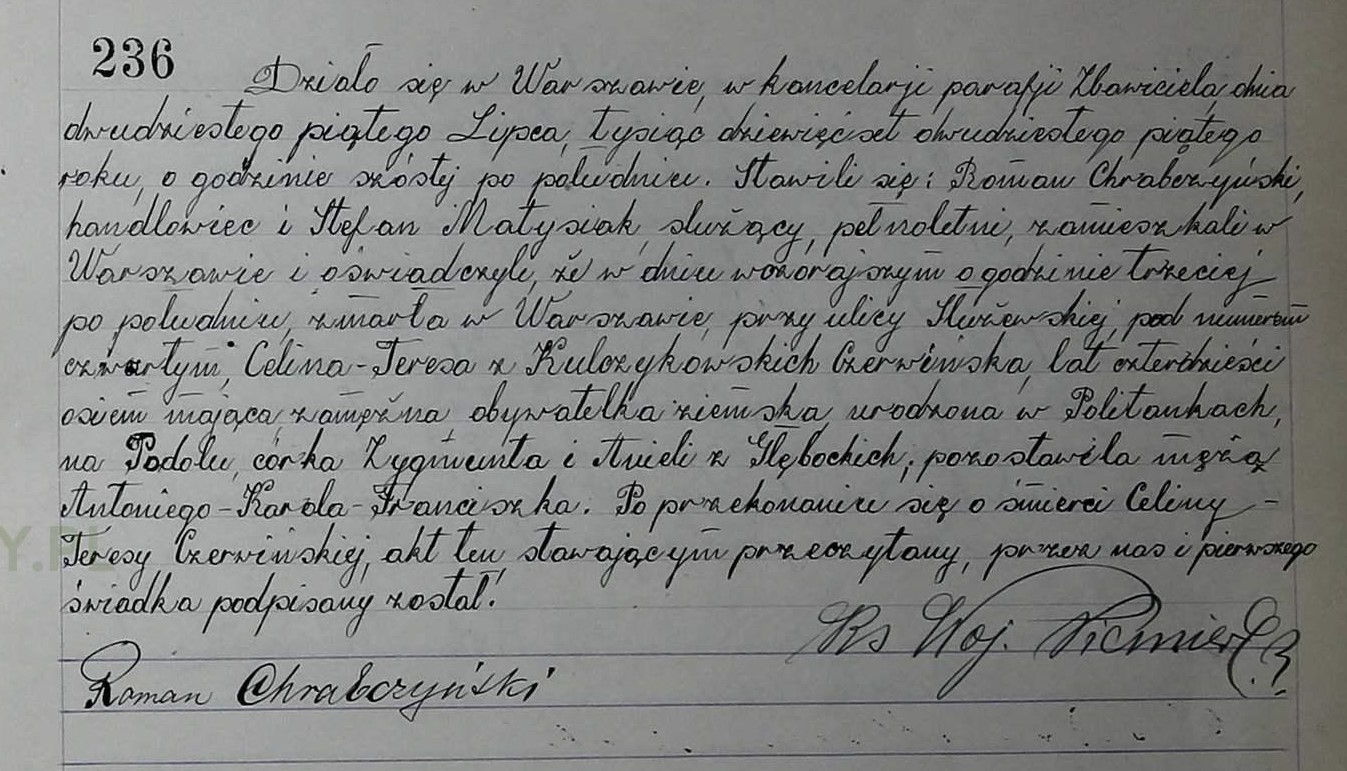 236
Działo się w Warszawie, w kancelarji parafji Zbawiciela, dnia
dwudziestego piątego Lipca, tysiąc dziewięćset dwudziestego piątego
roku, o godzinie szóstej po południu. Stawili się: Roman Chrabczyński,
handlowiec i Stefan Matysiak, służący, pełnoletni, zamieszkali w
Warszawie i oświadczyli, że w dniu wczorajszym o godzinie trzeciej
po południu, zmarła w Warszawie, przy ulicy Służewskiej, pod numerem
czwartym, Celina-Teresa z Kulczykowskich Czerwińska, lat czterdzieści
osiem mająca, zamężna, obywatelka ziemska, urodzona w Politankach,
na Podolu, córka Zygmunta i Anieli z Głębockich; pozostawiła męża
Antoniego-Karola-Franciszka. Po przekonaniu się o śmierci Celiny-
Teresy Czerwińskiej, akt ten, stawającym przeczytany, przez nas i pierwszego
świadka podpisany został.
Ks Woj.
Roman Chrabczyński
Y.PL